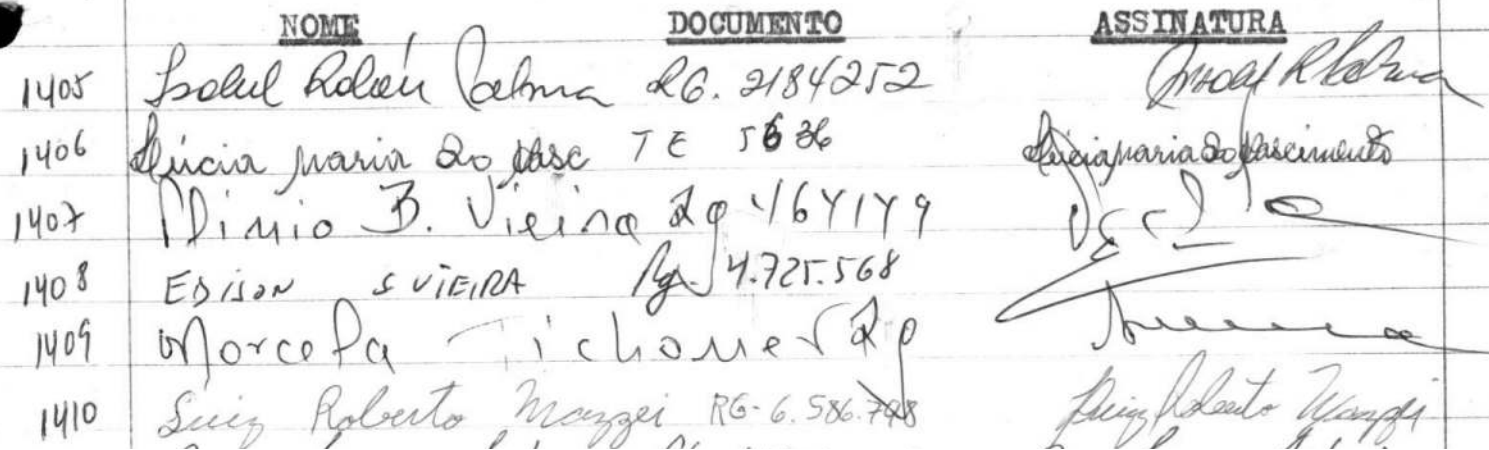 NOME DOCUMENTO ASSINATURA
1405 Isabel Rolán Palma RG. 2184252
1406 Lúcia maria do Nasc TE 5636 Lúcia maria do Nascimento
1407 B. Vieira Rg
1408 EDISON S VIEIRA Rg. 4.725.568
1409 Marcela Tichauer Rg
1410 Luiz Roberto Mazzei RG-6.586.798 Luiz Roberto Mazzei